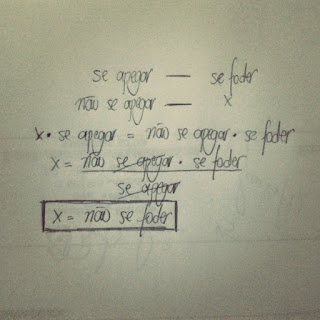 se apegar — se foder
não se apegar — x
x • se apegar = não se apegar • se foder
x = não se apegar • se foder
se apegar
x = não se foder